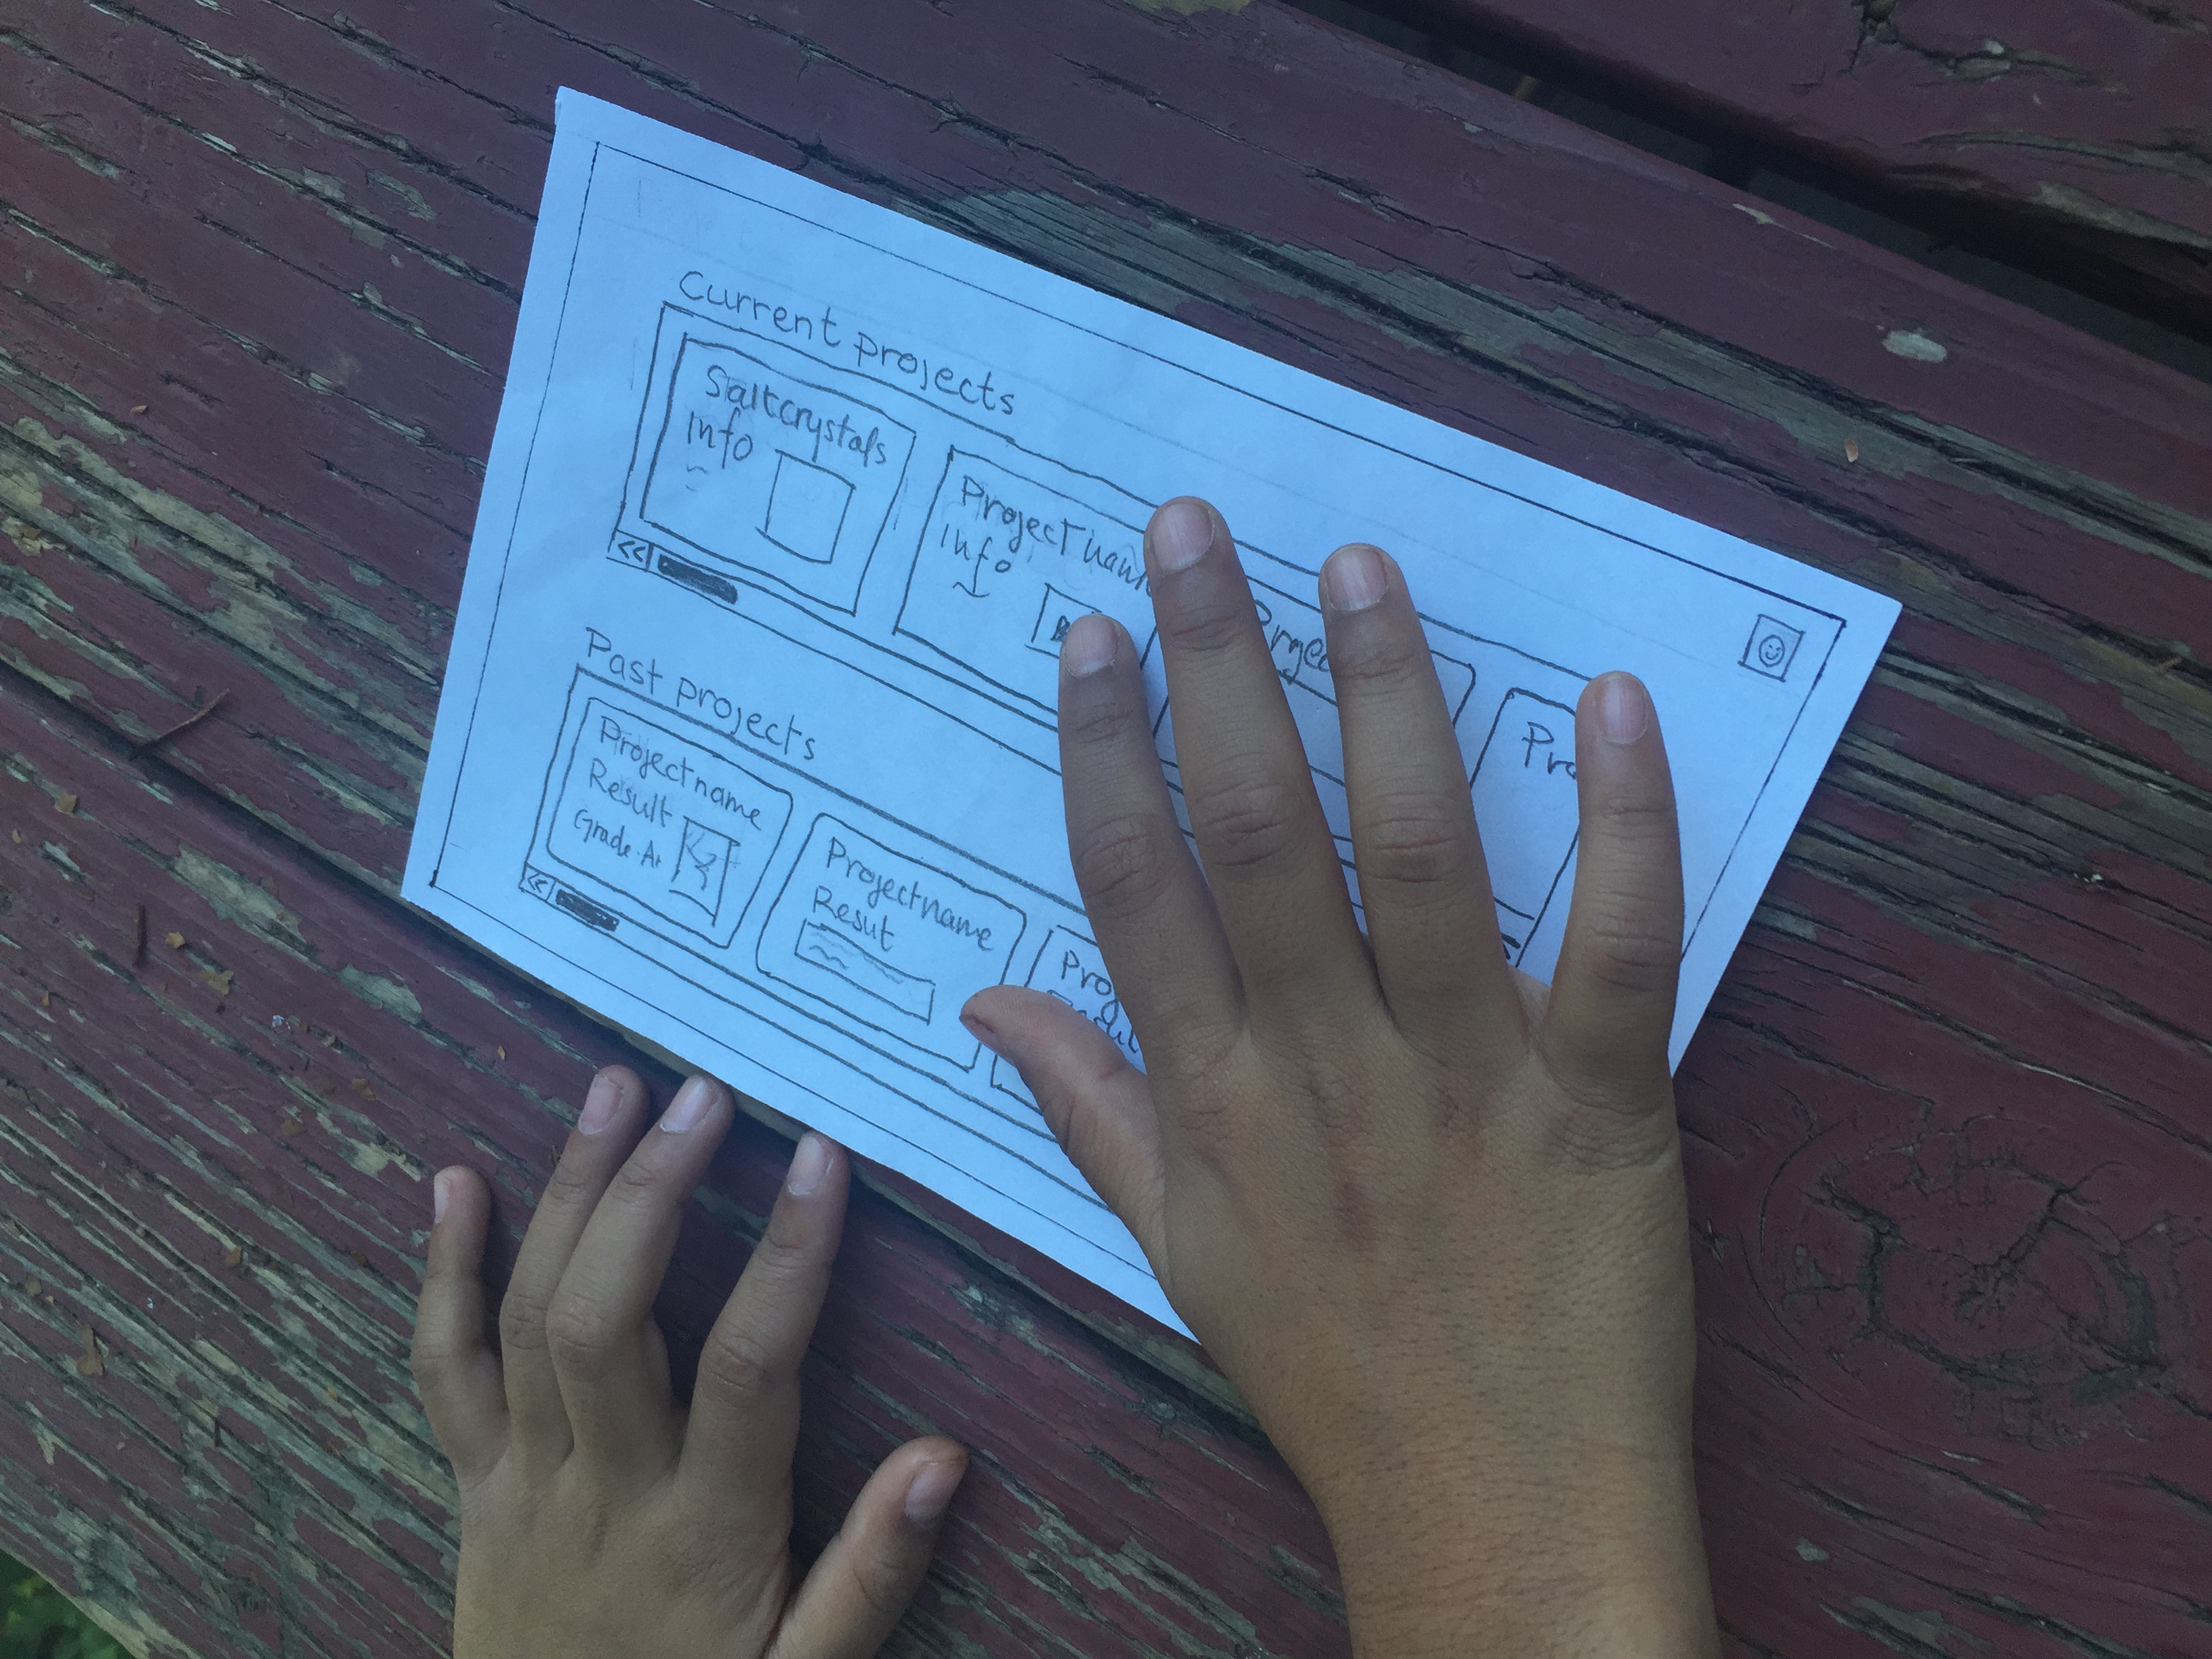 Current projects
Saltcrystals
info
Project name
info
Past projects
Project name
Result
Grade A+
Project name
Resut